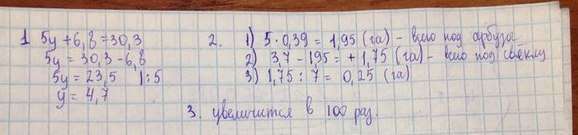 1 5y + 6,8 = 30,3
5y = 30,3 - 6,8
5y = 23,5 |:5
y = 4,7
2. 1) 5 · 0,39 = 1,95 (га) - всего под арбузы
2) 3,7 - 195 = + 1,75 (га) - всего под свеклу
3) 1,75 : 7 = 0,25 (га)
3. увеличится в 100 раз.